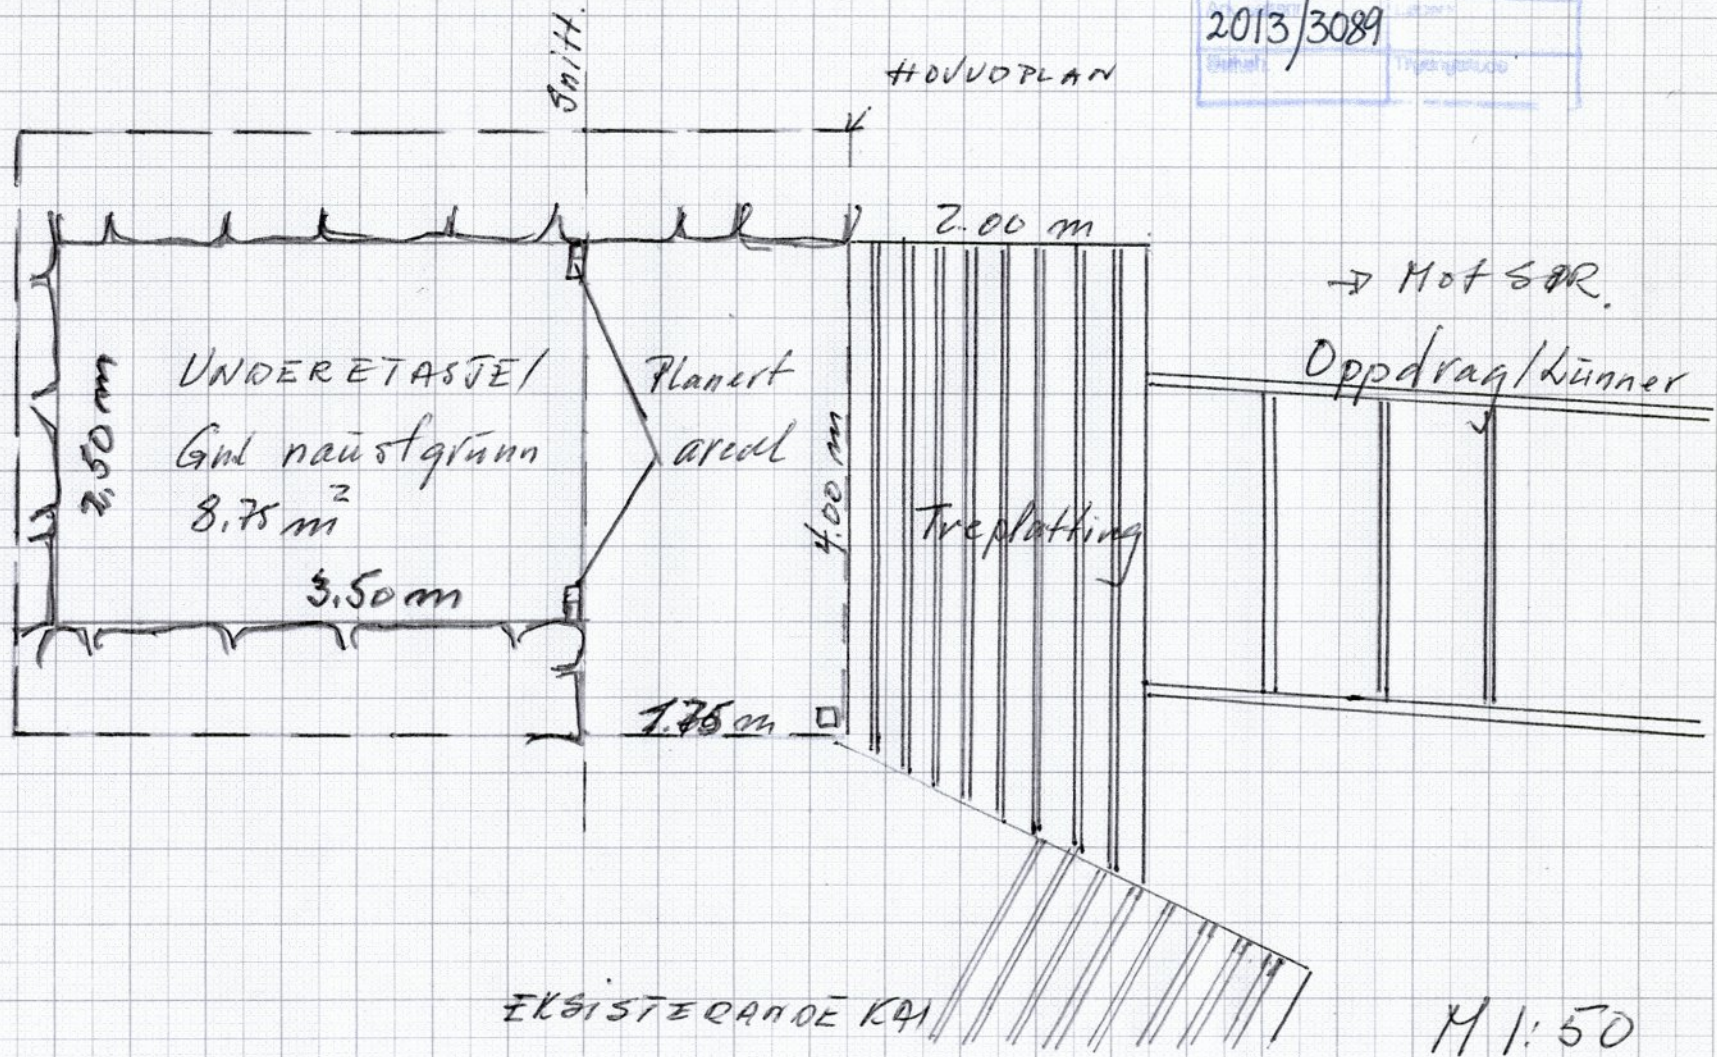 2013/3089
Snitt.
HOVUDPLAN
2.00 m
→ Mot SØR.
Oppdrag/Lunner
UNDERETASJE/
Gml naustgrunn
8.75 m²
2,50 m
3.50 m
Planert
areal
4.00 m
Treplatting
1.75 m
EKSISTERANDE KAI
M 1:50